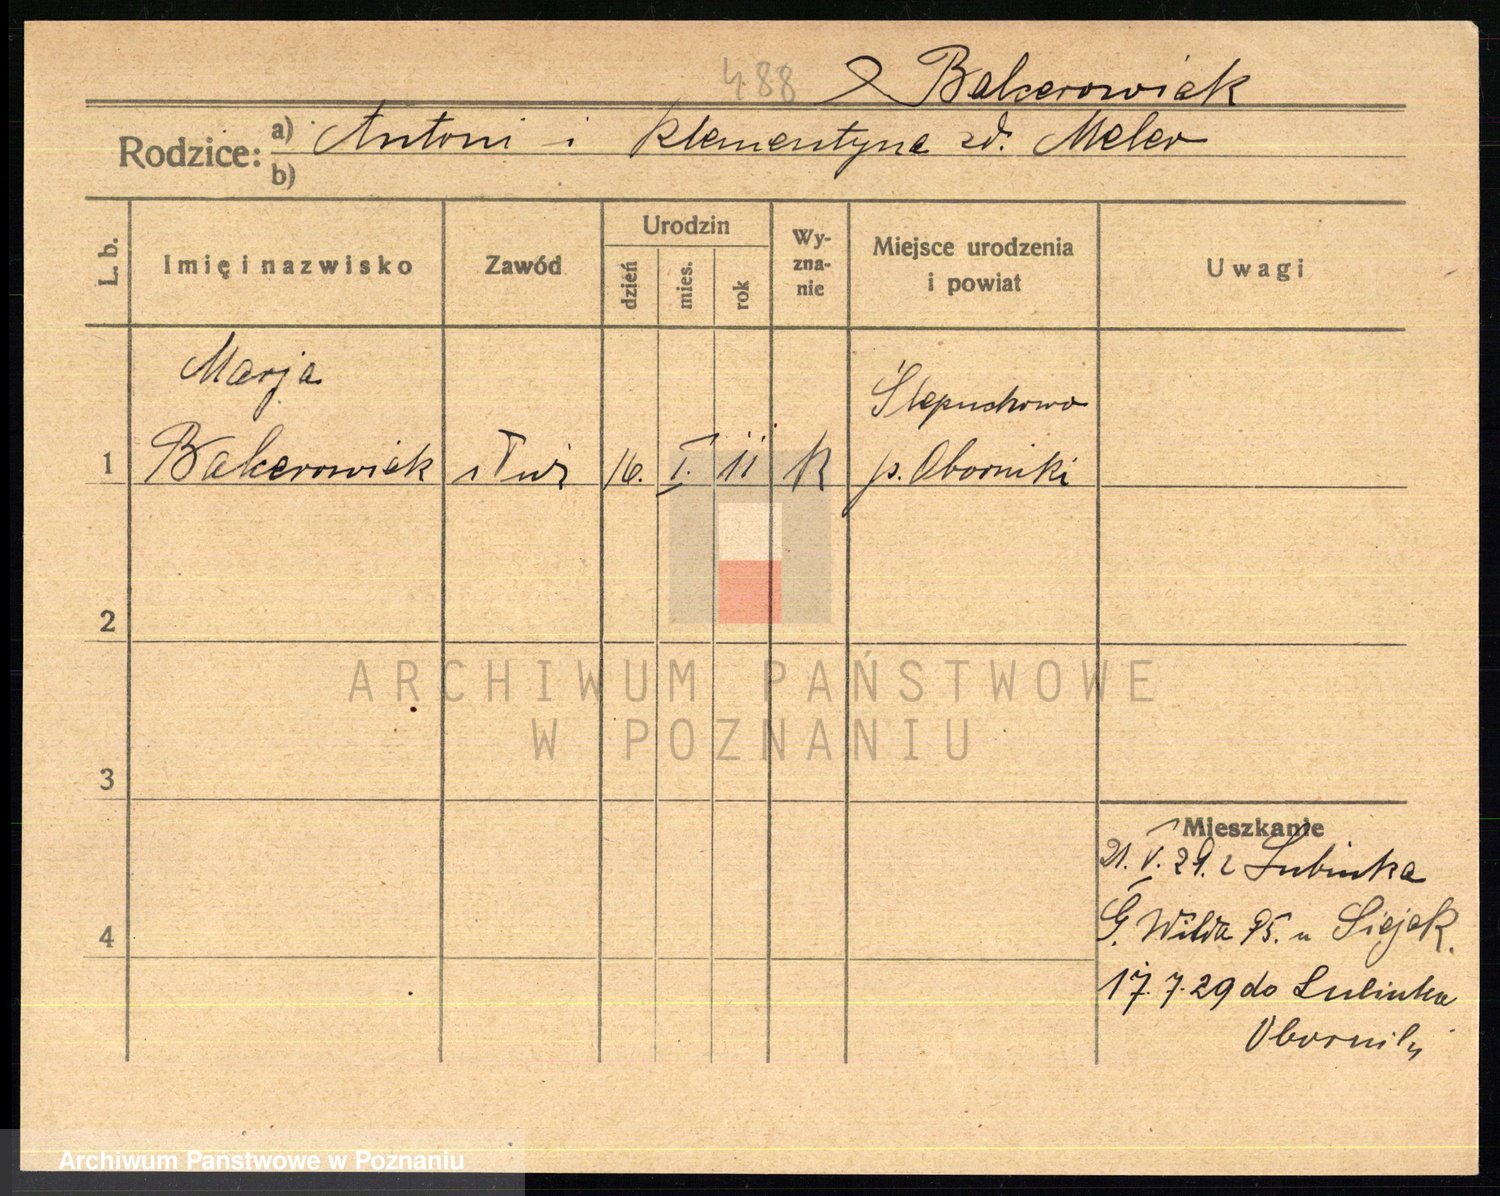 488 Balcerowiak
Rodzice: a) Antoni i Klementyna zd. Meler
b)
L. b.
Imię i nazwisko
Zawód
Urodzin
dzień
mies.
rok
Wy-
zna-
nie
Miejsce urodzenia
i powiat
Uwagi
Marja
Ślepuchowo
1 Balcerowiak służ 16. I. 11 K p. Oborniki
2
3
4
Mieszkanie
21. V. 29. z Lubinka
G. Wilda 95. u Siejak.
17. 7. 29 do Lubinka
Oborniki
ARCHIWUM PAŃSTWOWE
W POZNANIU
Archiwum Państwowe w Poznaniu